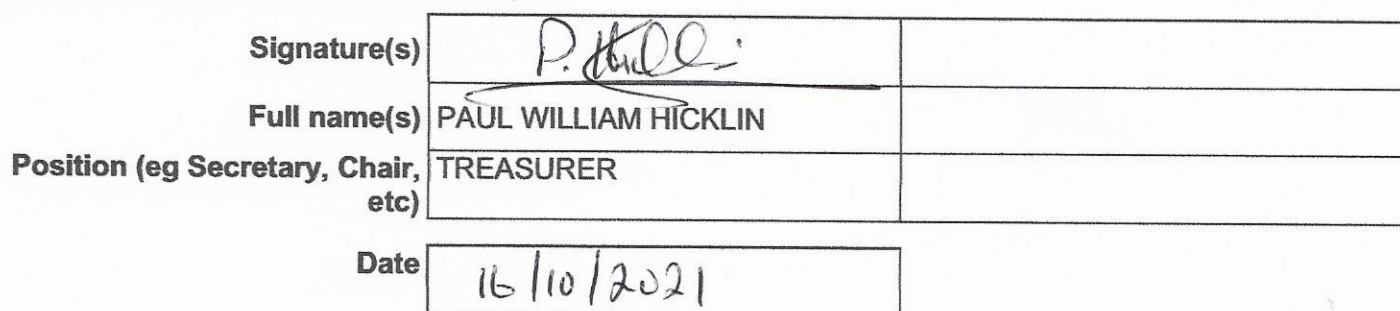 Signature(s) P. Hicklin
Full name(s) PAUL WILLIAM HICKLIN
Position (eg Secretary, Chair, TREASURER
etc)
Date 16/10/2021